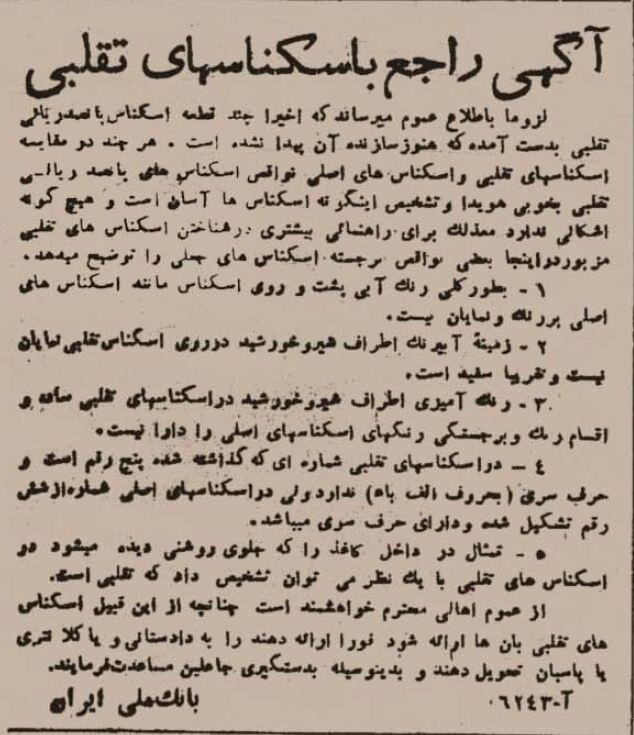 آگهی راجع باسکناسهای تقلبی
لزوما باطلاع عموم میرساند که اخیرا چند قطعه اسکناس پانصدریالی
تقلبی بدست آمده که هنوز سازنده آن پیدا نشده است . هر چند در مقایسه
اسکناسهای تقلبی و اسکناس های اصلی نواقص اسکناس های پانصد ریالی
تقلبی بخوبی هویدا و تشخیص اینگونه اسکناس ها آسان است و هیچ گونه
اشکالی ندارد معذلك برای راهنمائی بیشتری درشناختن اسکناس های تقلبی
مزبور دراینجا بعضی نواقص برجسته اسکناس های جعلی را توضیح میدهد .
۱ - بطور کلی رنك آبی پشت و روی اسکناس مانند اسکناس های
اصلی پررنك و نمایان نیست .
۲ - زمینۀ آبیرنك اطراف شیروخورشید درروی اسکناس تقلبی نمایان
نیست و تقریبا سفید است .
۳ - رنك آمیزی اطراف شیروخورشید دراسکناسهای تقلبی ساده و
اقسام رنك و برجستگی رنگهای اسکناسهای اصلی را دارا نیست .
٤ - دراسکناسهای تقلبی شماره ای که گذاشته شده پنج رقم است و
حرف سری (بحروف الف باء) ندارد ولی دراسکناسهای اصلی شماره ازشش
رقم تشکیل شده و دارای حرف سری میباشد .
٥ - تمثال در داخل کاغذ را که جلوی روشنی دیده میشود در
اسکناس های تقلبی با یك نظر می توان تشخیص داد که تقلبی است .
از عموم اهالی محترم خواهشمند است چنانچه از این قبیل اسکناس
های تقلبی بان ها ارائه شود فورا ارائه دهنده را به دادستانی و یا کلانتری
یا پاسبان تحویل دهند و بدینوسیله بدستگیری جاعلین مساعدت فرمایند.
آ-٠٦٢٤٣ بانك ملی ایران